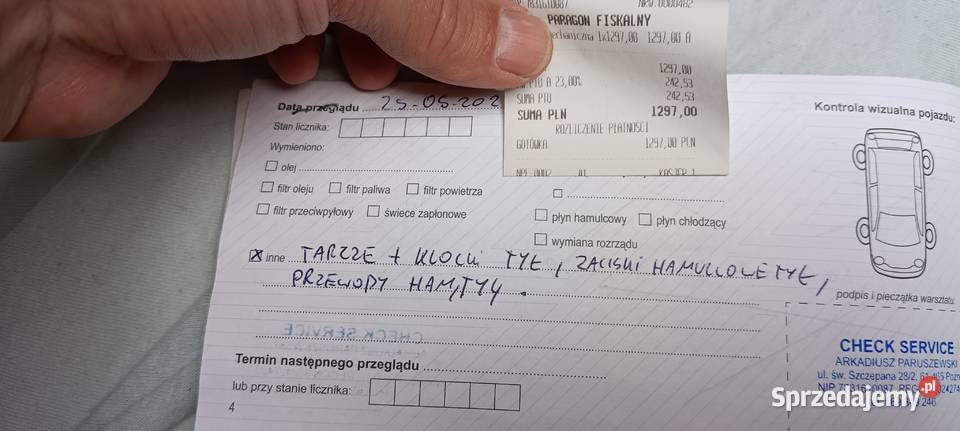 7831610087 NRW.0000482
PARAGON FISKALNY
echaniczna 1x1297,00 1297,00 A
1297,00
PTU A 23,00% 242,53
SUMA PTU 242,53
SUMA PLN 1297,00
ROZLICZENIE PŁATNOŚCI
GOTÓWKA 1297,00 PLN
KASJER 1
Data przeglądu 25-05-202
Stan licznika:
Wymieniono:
olej
filtr oleju filtr paliwa filtr powietrza
filtr przeciwpyłowy świece zapłonowe
płyn hamulcowy płyn chłodzący
wymiana rozrządu
inne TARCZE + KLOCKI TYŁ, ZACISKI HAMULCOWE TYŁ,
PRZEWODY HAM, TYŁ.
CHECK SERVICE
Termin następnego przeglądu
lub przy stanie licznika:
4
Kontrola wizualna pojazdu:
podpis i pieczątka warsztatu
CHECK SERVICE
ARKADIUSZ PARUSZEWSKI
ul. św. Szczepana 28/2, 61-465 Pozn
Sprzedajemy.pl